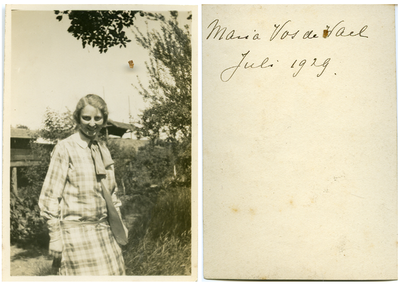 Maria Vos de Wael
Juli 1929.